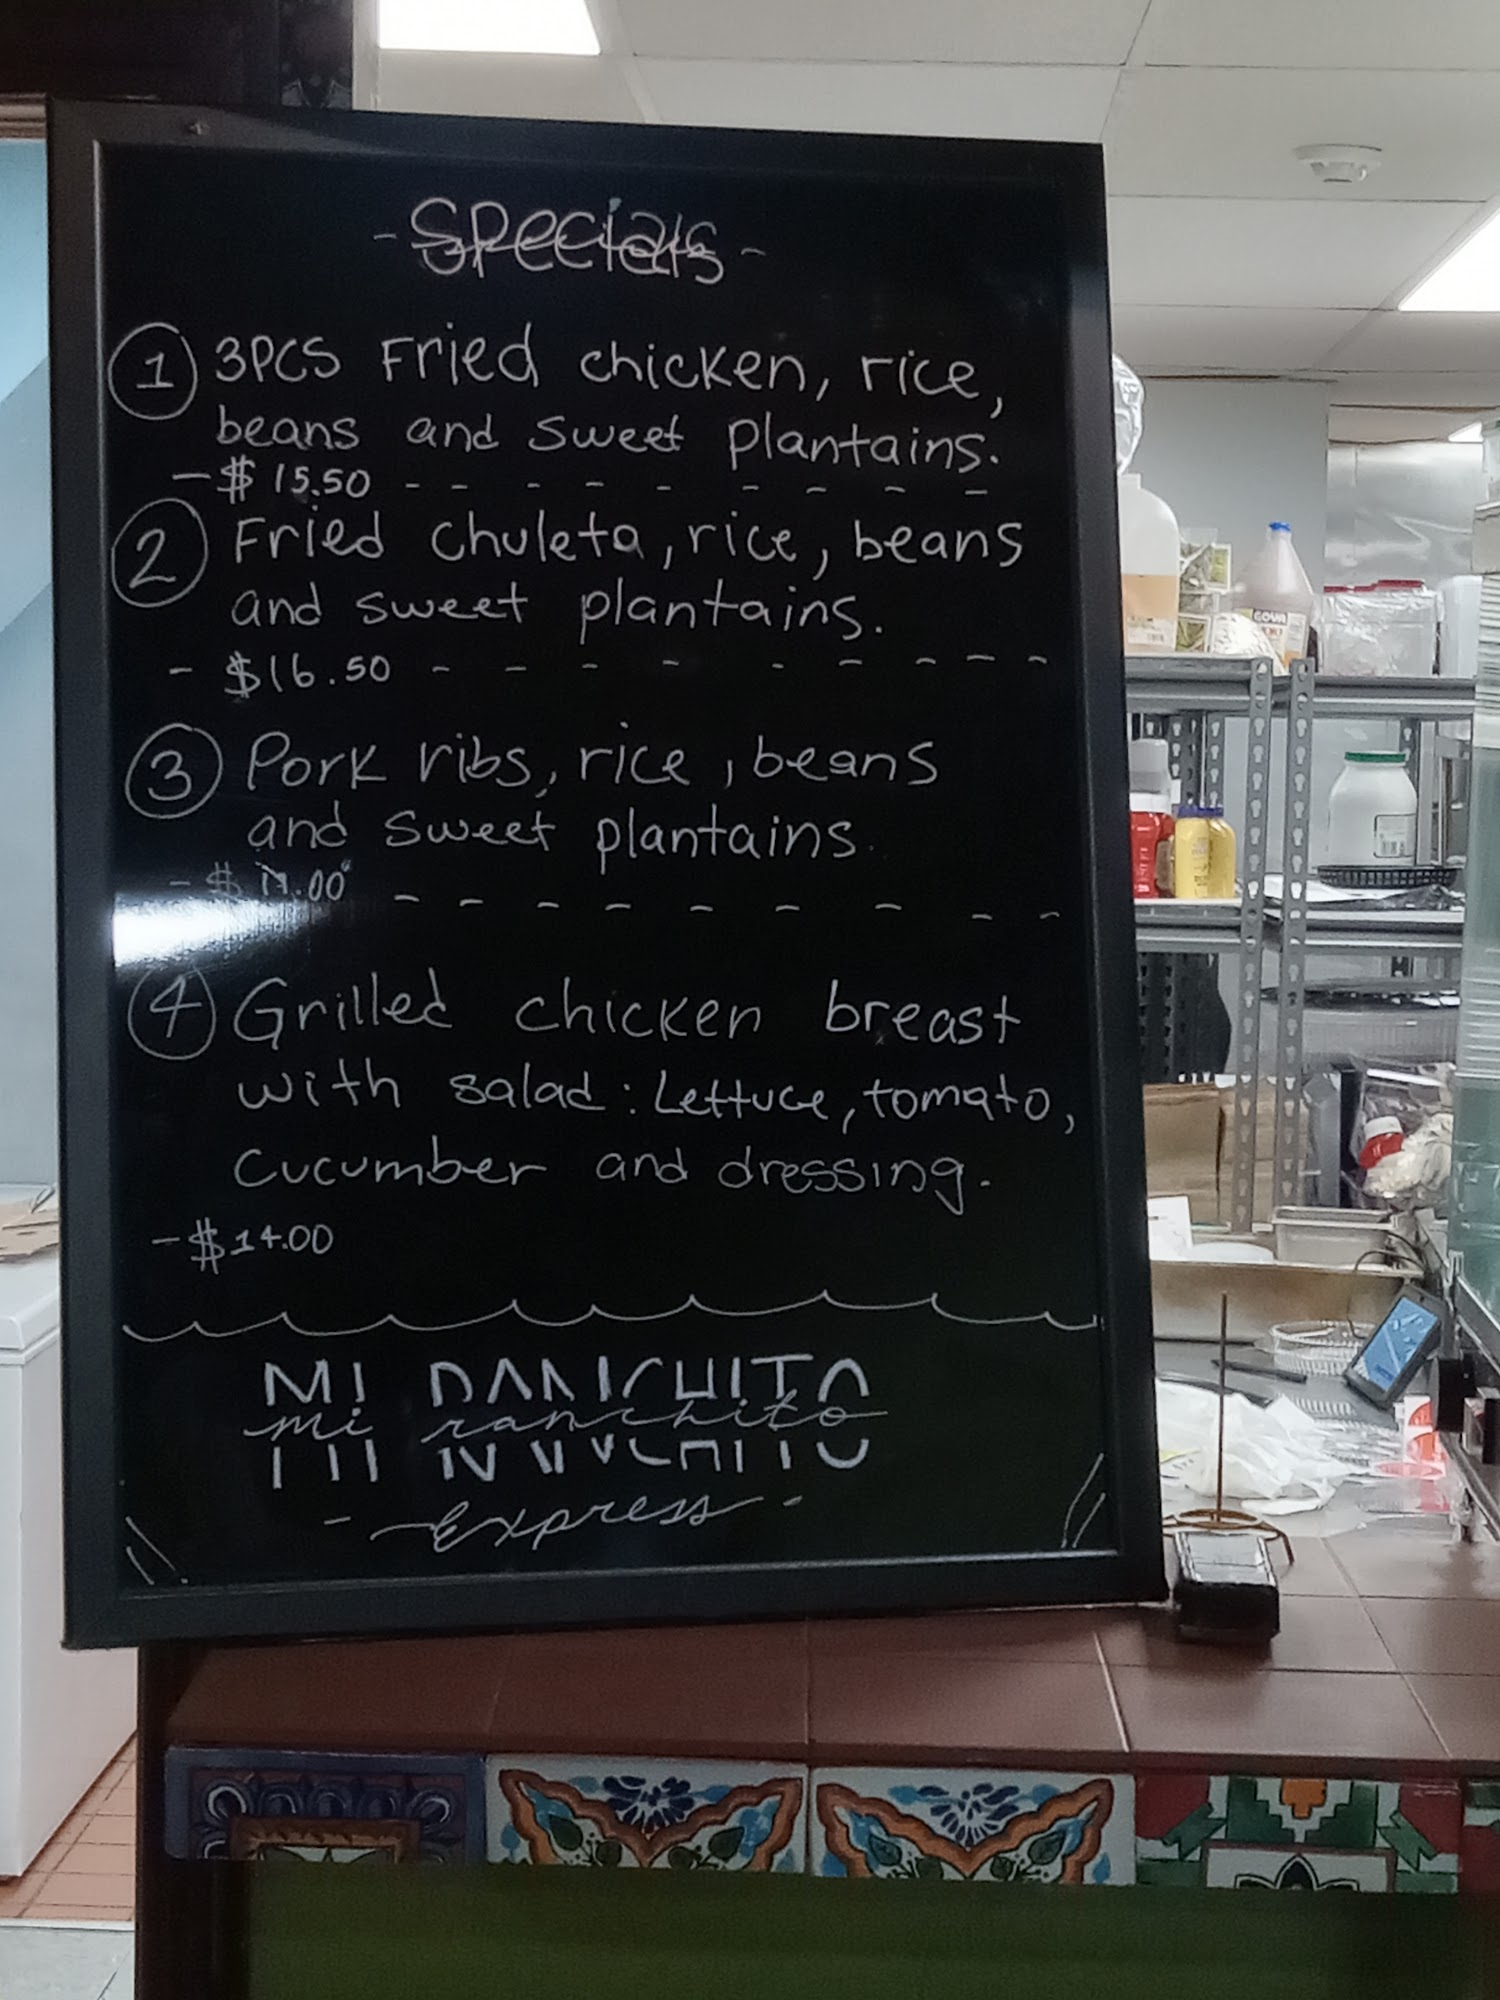 - Specials -
1 3PCS Fried chicken, rice,
beans and sweet plantains.
- $ 15.50 - - - - - - - -
2 Fried chuleta, rice, beans
and sweet plantains.
- $16.50 - - - - - - - - -
3 Pork ribs, rice, beans
and sweet plantains.
- - - - - - - - -
4 Grilled chicken breast
with salad: Lettuce, tomato,
cucumber and dressing.
- $14.00
MI RANCHITO
mi ranchito
- Express -
GOYA